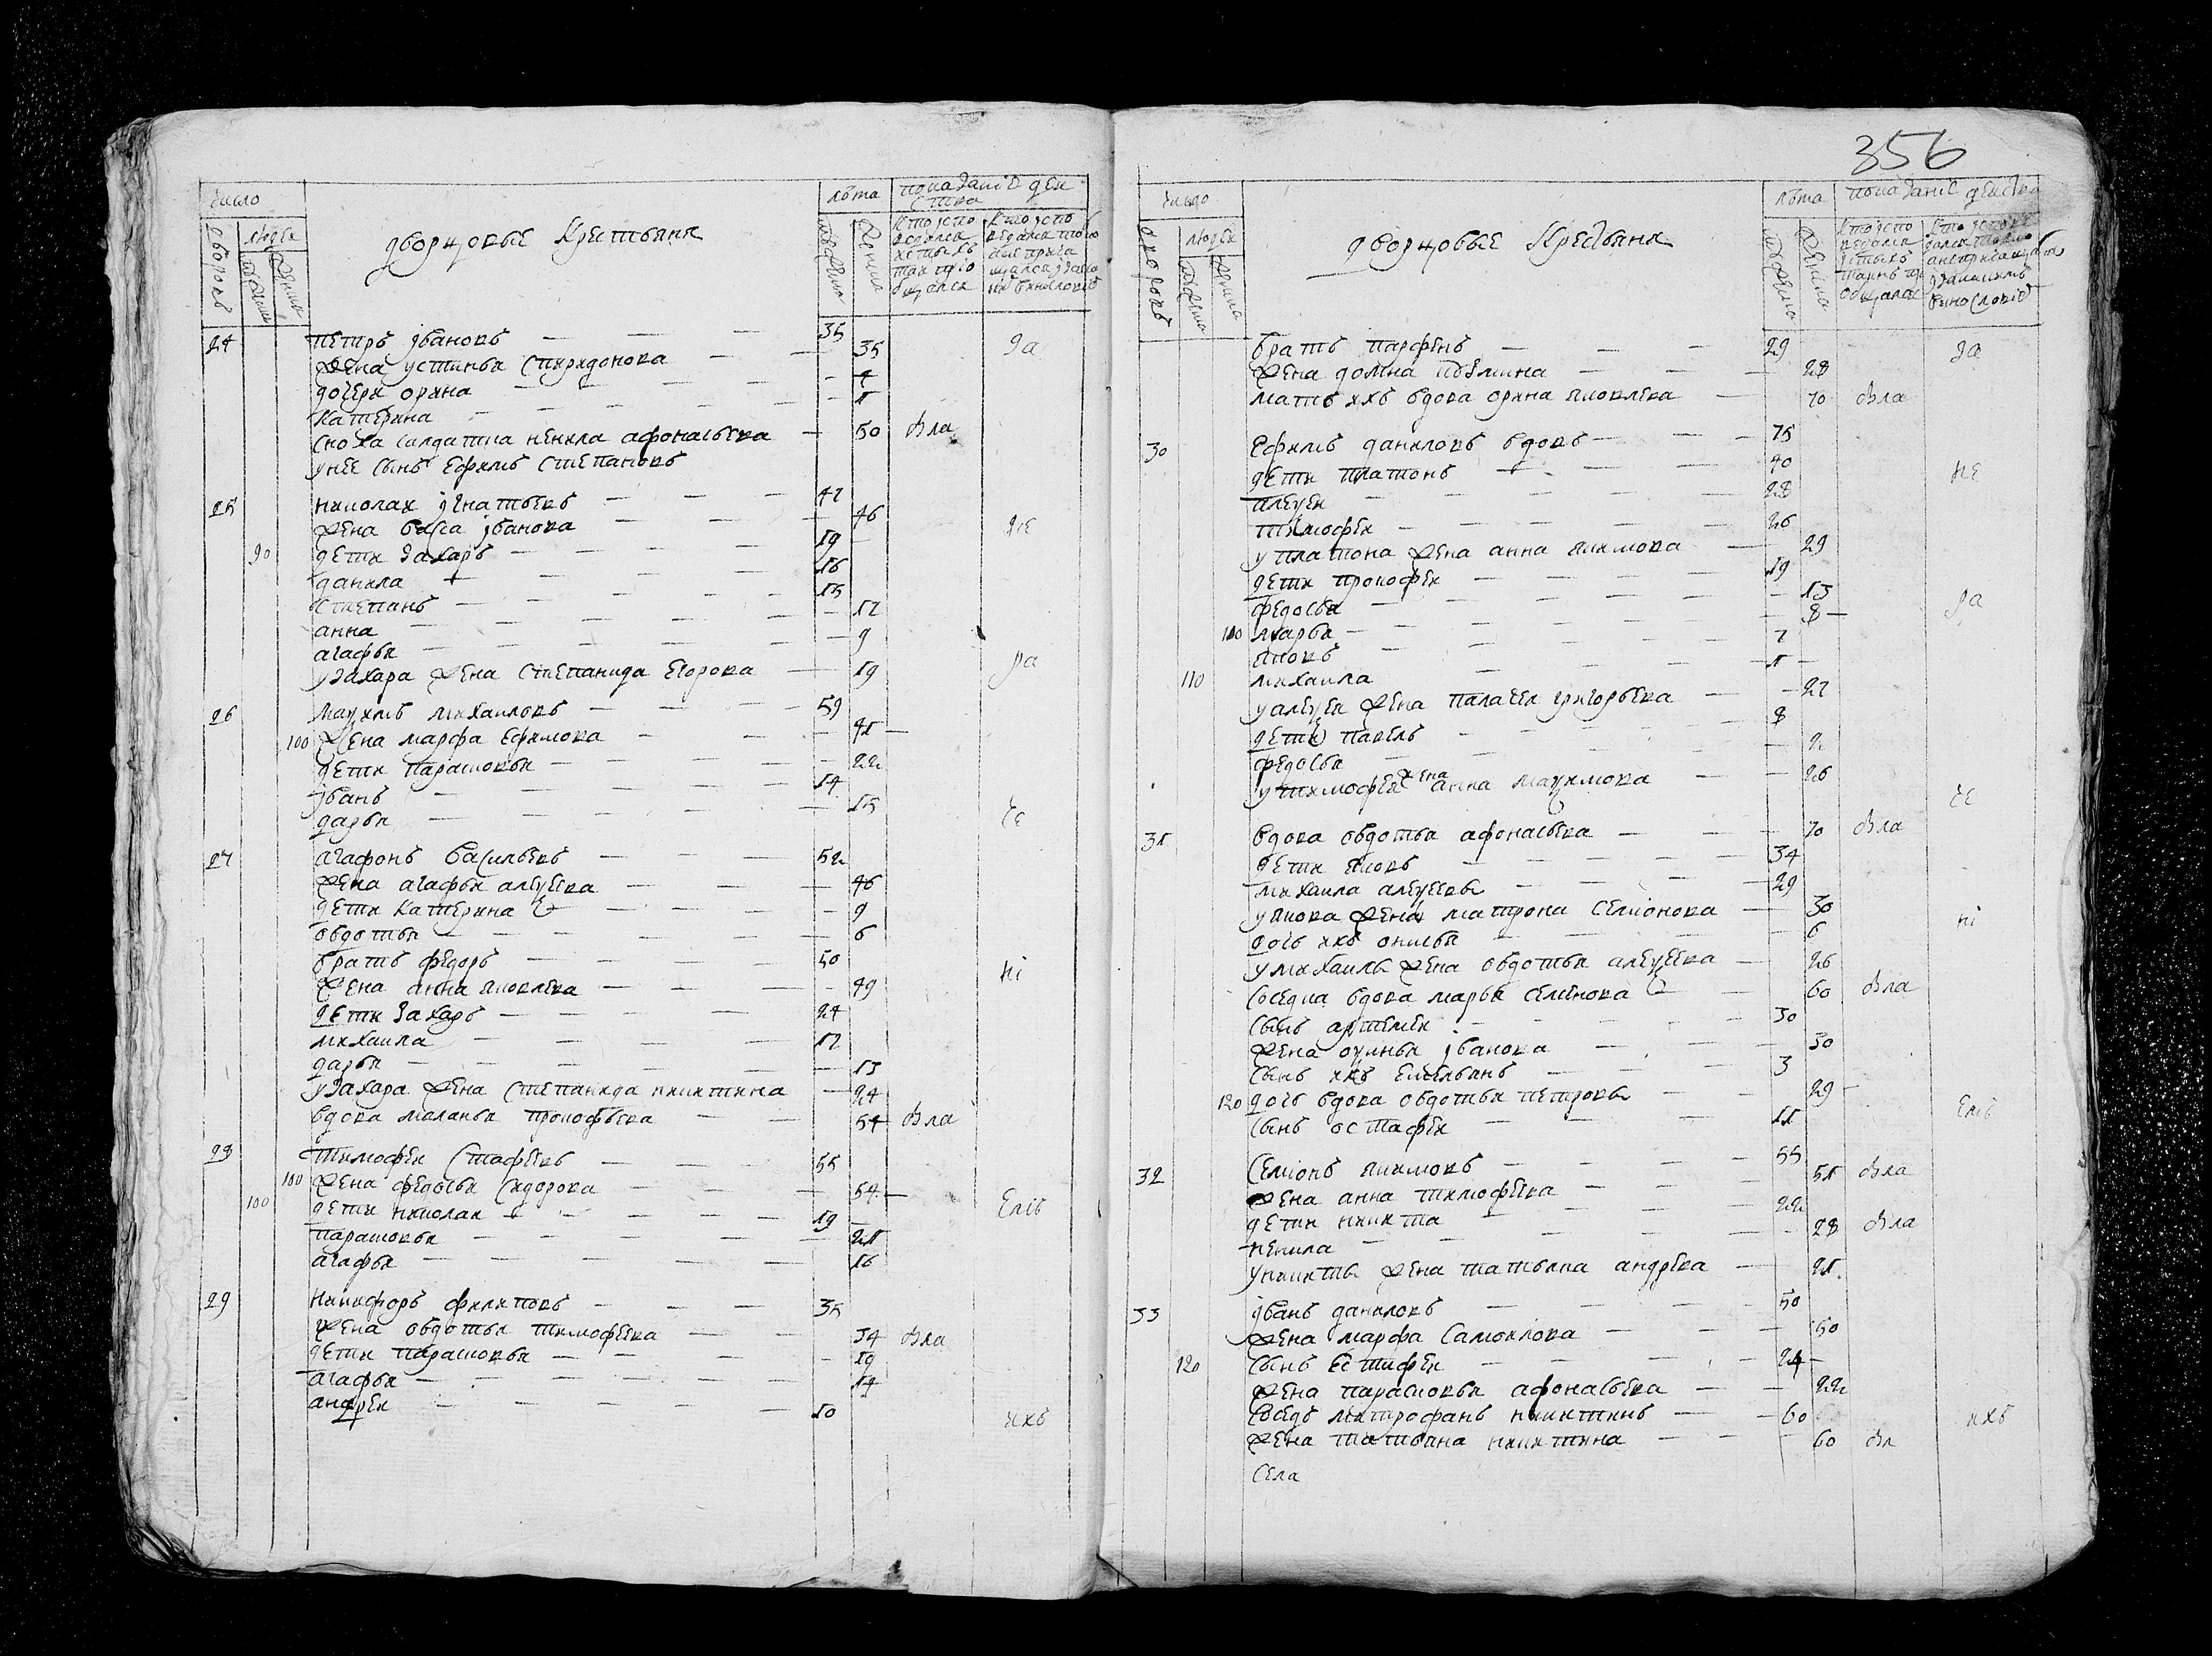 число
дворовъ
людеи
мужеска
женска
дворцовые крестьяня
лѣта
мужеска
женска
показание деи
ства
кто испо
ведался
и стыхъ
таи прїо
бщался
24 петръ ивановъ — — — 35
жена устинья спиридонова — — 35 да
дочери орина — — — 4
катерина — — — 1
сноха салдатка ненила афонасьева — 50 была
у нее сынъ ефимъ степановъ
25 николаи игнатьевъ — — — 42
жена васса иванова — — 46
90 дети захаръ — — — 19
данила — — — 16
степанъ — — — 15
анна — — — 12
агафья — — — 9
у захара жена степанида егорова — 19
26 маѯимъ михаиловъ — — — 59
100 жена марфа ефимова — — 41
дети парасковья — — — 22
иванъ — — — 14
дарья — — — 15
27 агафонъ васильевъ — — — 52
жена агафья алеѯеева — — 46
дети катерина — — — 9
овдотья — — — 6
братъ федоръ — — — 50
жена анна яковлева — — — 49
дети захаръ — — — 24
михаила — — — 12
дарья — — — 13
у захара жена степанида никитина — 24
вдова маланья прокофьева — — 54 была
28 тимофеи стафеевъ — — — 55
100 жена федосья сидорова — — 54
100 дети николаи — — — 19
парасковья — — — 21
агафья — — — 16
29 никифоръ филиповъ — — — 35
жена овдотья тимофеева — — 34 была
дети парасковья — — — 19
агафья — — — 14
андреи — — — 10
ихъ
356
число
дворовъ
людеи
мужеска
женска
дворцовые крестьяня
лѣта
мужеска
женска
показание деиства
братъ парфенъ — — — 29 да
жена домна — — 28
мать ихъ вдова орина яковлева — 70 была
30 ефимъ даниловъ вдовъ — — — 75
дети платонъ — — — 40 не
алеѯеи — — — 28
тимофеи — — — 26
у платона жена анна якимова — 29
дети прокофеи — — — 19
федосья — — — 13
110 марья — — — 8
яковъ — — — 7
110 михаила — — — 1
у алеѯея жена палагея григорьева — 27
дети павелъ — — — 8
федосья — — — 2
у тимофея жена анна маѯимова — — 26
31 вдова овдотья афонасьева — — 70 была
дети яковъ — — — 34
михаила алеѯеевы — — — 29
у якова жена матрона семионова — 30
дочь ихъ онисья — — — 6
у михаилы жена овдотья алеѯеева — 26
соседка вдова марья семенова — 60 была
сынъ артемеи — — — 30
жена оѯинья иванова — — 30
сынъ ихъ емельянъ — — — 3
120 дочь вдова овдотья петровы — — 29
сынъ остафеи — — — 11
32 семионъ якимовъ — — — 55
жена анна тимофеева — — 51 была
дети никита — — — 22
ненила — — — 28 была
у никиты жена татьяна андреева — 21
33 иванъ даниловъ — — — 50
жена марфа самоилова — — 50
120 сынъ естифеи — — — 24
жена парасковья афонасьева — — 22
соседъ митрофанъ никитинъ — — 60 ихъ
жена татьяна никитина — — 60 бы
села